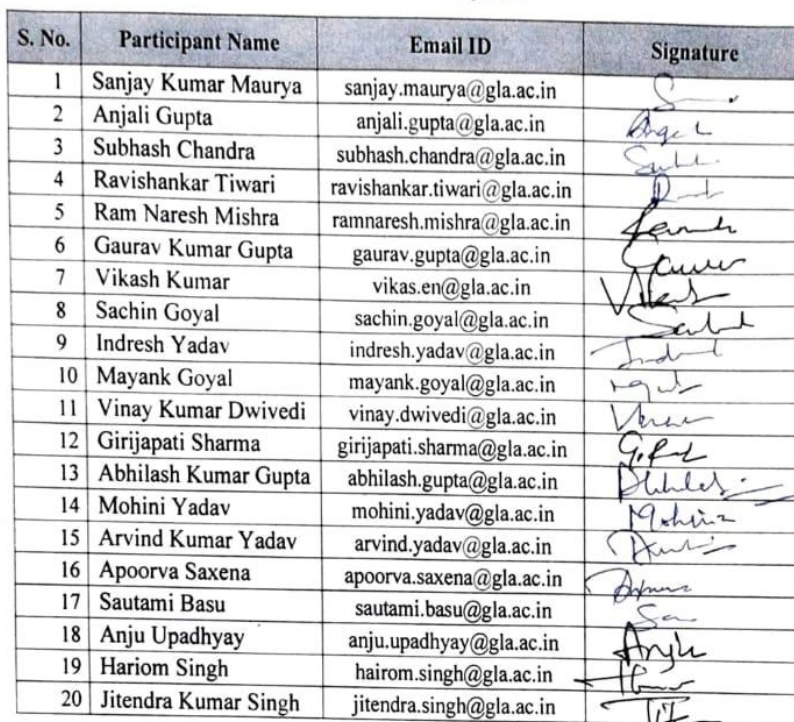 S. No. Participant Name Email ID Signature
1 Sanjay Kumar Maurya sanjay.maurya@gla.ac.in
2 Anjali Gupta anjali.gupta@gla.ac.in
3 Subhash Chandra subhash.chandra@gla.ac.in
4 Ravishankar Tiwari ravishankar.tiwari@gla.ac.in
5 Ram Naresh Mishra ramnaresh.mishra@gla.ac.in
6 Gaurav Kumar Gupta gaurav.gupta@gla.ac.in
7 Vikash Kumar vikas.en@gla.ac.in
8 Sachin Goyal sachin.goyal@gla.ac.in
9 Indresh Yadav indresh.yadav@gla.ac.in
10 Mayank Goyal mayank.goyal@gla.ac.in
11 Vinay Kumar Dwivedi vinay.dwivedi@gla.ac.in
12 Girijapati Sharma girijapati.sharma@gla.ac.in
13 Abhilash Kumar Gupta abhilash.gupta@gla.ac.in
14 Mohini Yadav mohini.yadav@gla.ac.in Mohini
15 Arvind Kumar Yadav arvind.yadav@gla.ac.in
16 Apoorva Saxena apoorva.saxena@gla.ac.in
17 Sautami Basu sautami.basu@gla.ac.in
18 Anju Upadhyay anju.upadhyay@gla.ac.in Anju
19 Hariom Singh hairom.singh@gla.ac.in
20 Jitendra Kumar Singh jitendra.singh@gla.ac.in